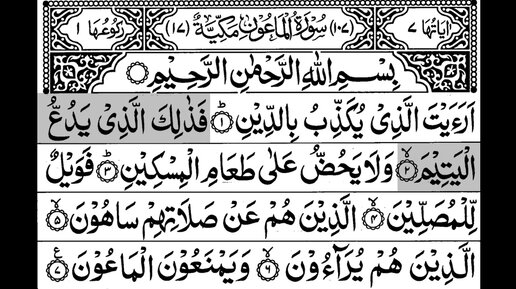 اٰيَاتُهَا ٧ (١٠٧) سُوْرَةُ الْمَاعُوْنِ مَكِّيَّةٌ (١٧) رُكُوْعُهَا ١
بِسْمِ اللّٰهِ الرَّحْمٰنِ الرَّحِيْمِ
اَرَءَيْتَ الَّذِىْ يُكَذِّبُ بِالدِّيْنِ ۝١ؕ فَذٰلِكَ الَّذِىْ يَدُعُّ
الْيَتِيْمَ ۝٢ۙ وَلَا يَحُضُّ عَلٰى طَعَامِ الْمِسْكِيْنِ ۝٣ؕ فَوَيْلٌ
لِّلْمُصَلِّيْنَ ۝٤ۙ الَّذِيْنَ هُمْ عَنْ صَلَاتِهِمْ سَاهُوْنَ ۝٥ۙ
الَّذِيْنَ هُمْ يُرَآءُوْنَ ۝٦ۙ وَيَمْنَعُوْنَ الْمَاعُوْنَ ۝٧ع